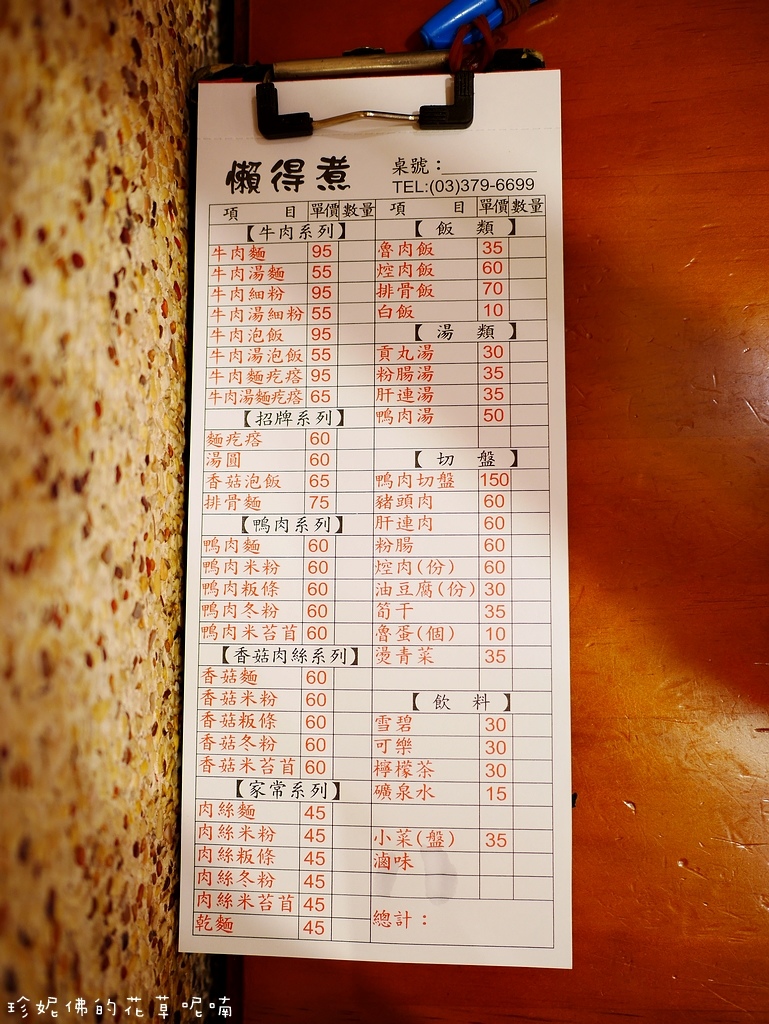 懶得煮
桌號：
TEL:(03)379-6699
項 目 單價 數量
【牛肉系列】
牛肉麵 95
牛肉湯麵 55
牛肉細粉 95
牛肉湯細粉 55
牛肉泡飯 95
牛肉湯泡飯 55
牛肉麵疙瘩 95
牛肉湯麵疙瘩 65
【招牌系列】
麵疙瘩 60
湯圓 60
香菇泡飯 65
排骨麵 75
【鴨肉系列】
鴨肉麵 60
鴨肉米粉 60
鴨肉粄條 60
鴨肉冬粉 60
鴨肉米苔苜 60
【香菇肉絲系列】
香菇麵 60
香菇米粉 60
香菇粄條 60
香菇冬粉 60
香菇米苔苜 60
【家常系列】
肉絲麵 45
肉絲米粉 45
肉絲粄條 45
肉絲冬粉 45
肉絲米苔苜 45
乾麵 45
項 目 單價 數量
【飯 類】
魯肉飯 35
焢肉飯 60
排骨飯 70
白飯 10
【湯 類】
貢丸湯 30
粉腸湯 35
肝連湯 35
鴨肉湯 50
【切 盤】
鴨肉切盤 150
豬頭肉 60
肝連肉 60
粉腸 60
焢肉(份) 60
油豆腐(份) 30
筍干 35
魯蛋(個) 10
燙青菜 35
【飲 料】
雪碧 30
可樂 30
檸檬茶 30
礦泉水 15
小菜(盤) 35
滷味
總計：
珍妮佛的花草呢喃